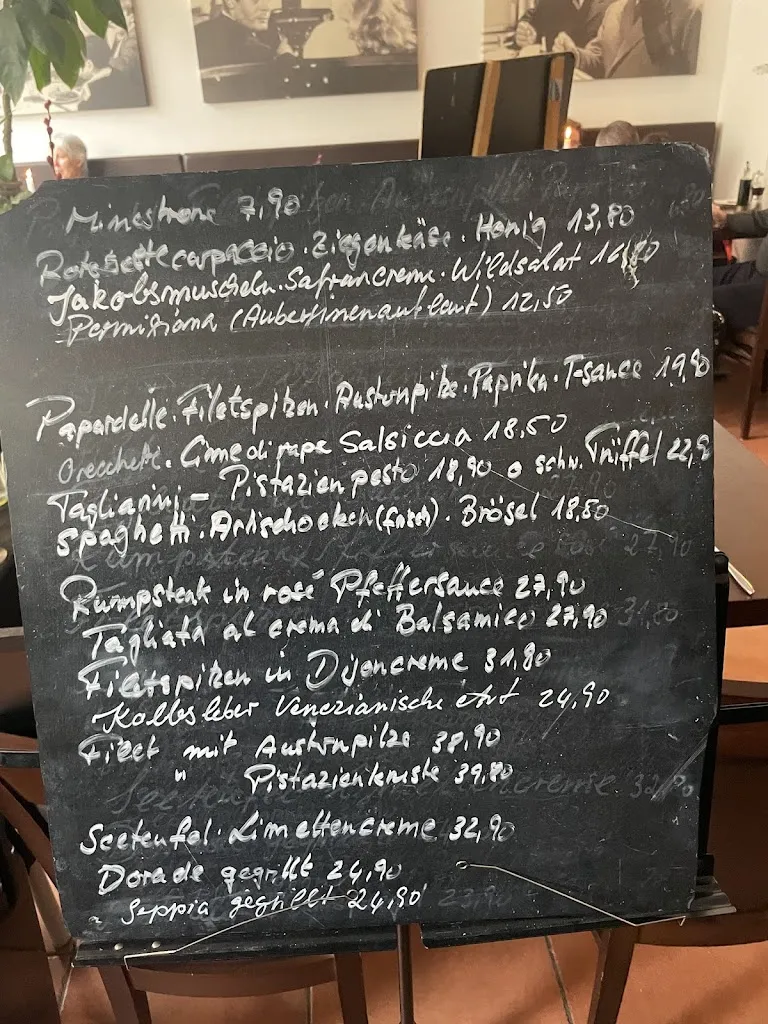 Minestrone 7,90
Rote Beete carpaccio. Ziegenkäse. Honig 13,80
Jakobsmuscheln. Safrancreme. Wildsalat 16,80
Permigiana (Auberginenauflauf) 12,50
Papardelle. Filetspitzen. Austernpilze. Paprika. T-sauce 19,90
Orecchette. Cime di rape Salsiccia 18,50
Tagliarini - Pistazienpesto 18,90 o schw. Trüffel 22,90
Spaghetti. Artischocken (frisch). Brösel 18,50
Rumpsteak in rosé Pfeffersauce 27,90
Tagliata al crema di Balsamico 27,90
Filetspitzen in Dijoncreme 31,80
Kalbsleber Venezianische Art 24,90
Filet mit Austernpilze 38,90
" Pistazienkruste 39,80
Seeteufel. Limettencreme 32,90
Dorade gegrillt 24,90
Seppia gegrillt 24,90